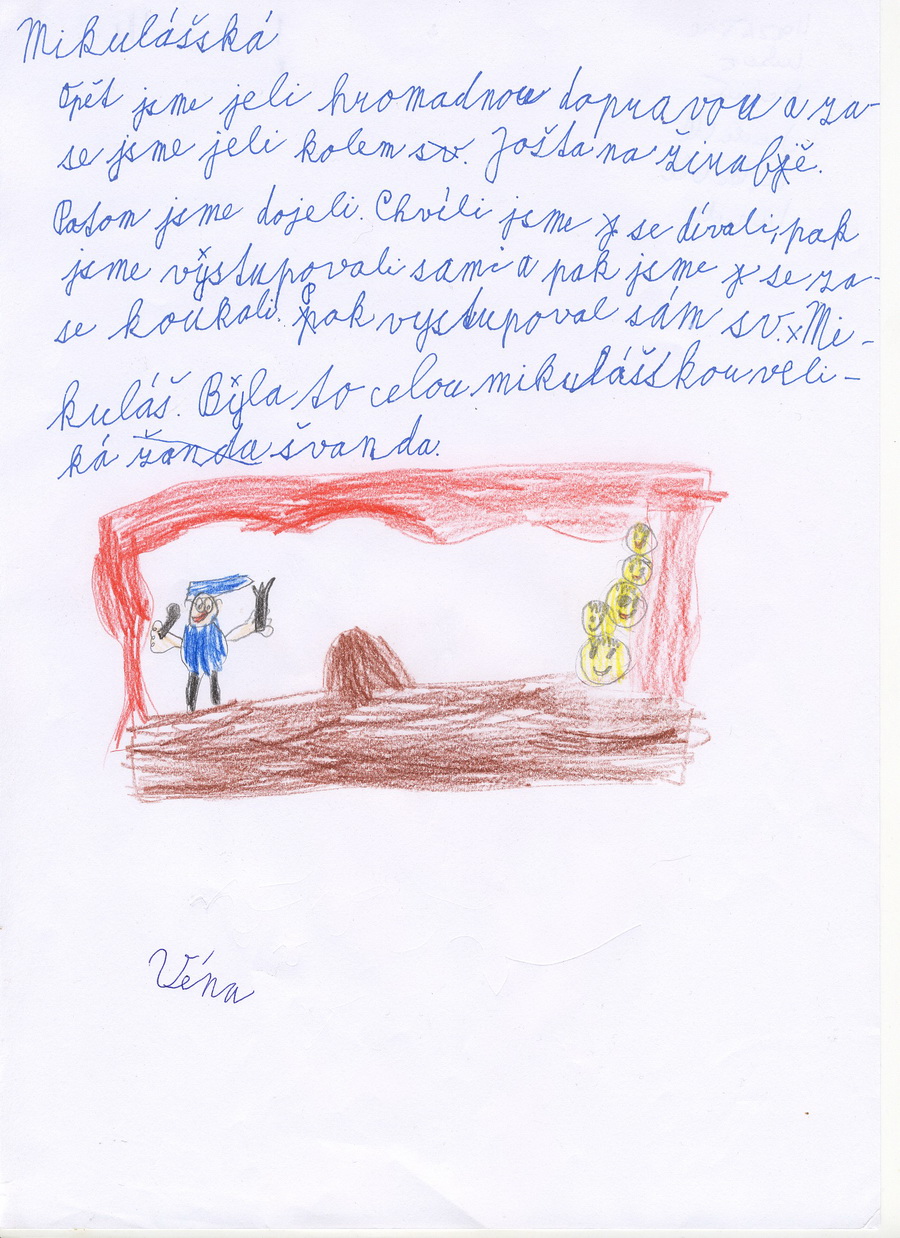 Mikulášská
Opět jsme jeli hromadnou dopravou a za-
se jsme jeli kolem sv. Jošta na žirabjě.
Potom jsme dojeli. Chvíli jsme se dívali, pak
jsme vystupovali sami a pak jsme se za-
se koukali. Pak vystupoval sám sv. Mi-
kuláš. Byla to celou mikulášskou veli-
ká žanda švanda.
Véna